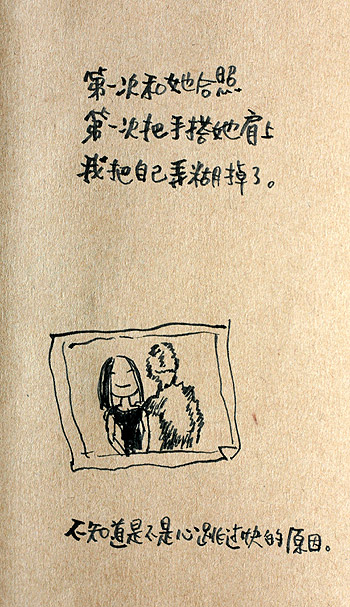 第一次和她合照
第一次把手搭她肩上
我把自己弄糊掉了。
不知道是不是心跳过快的原因。